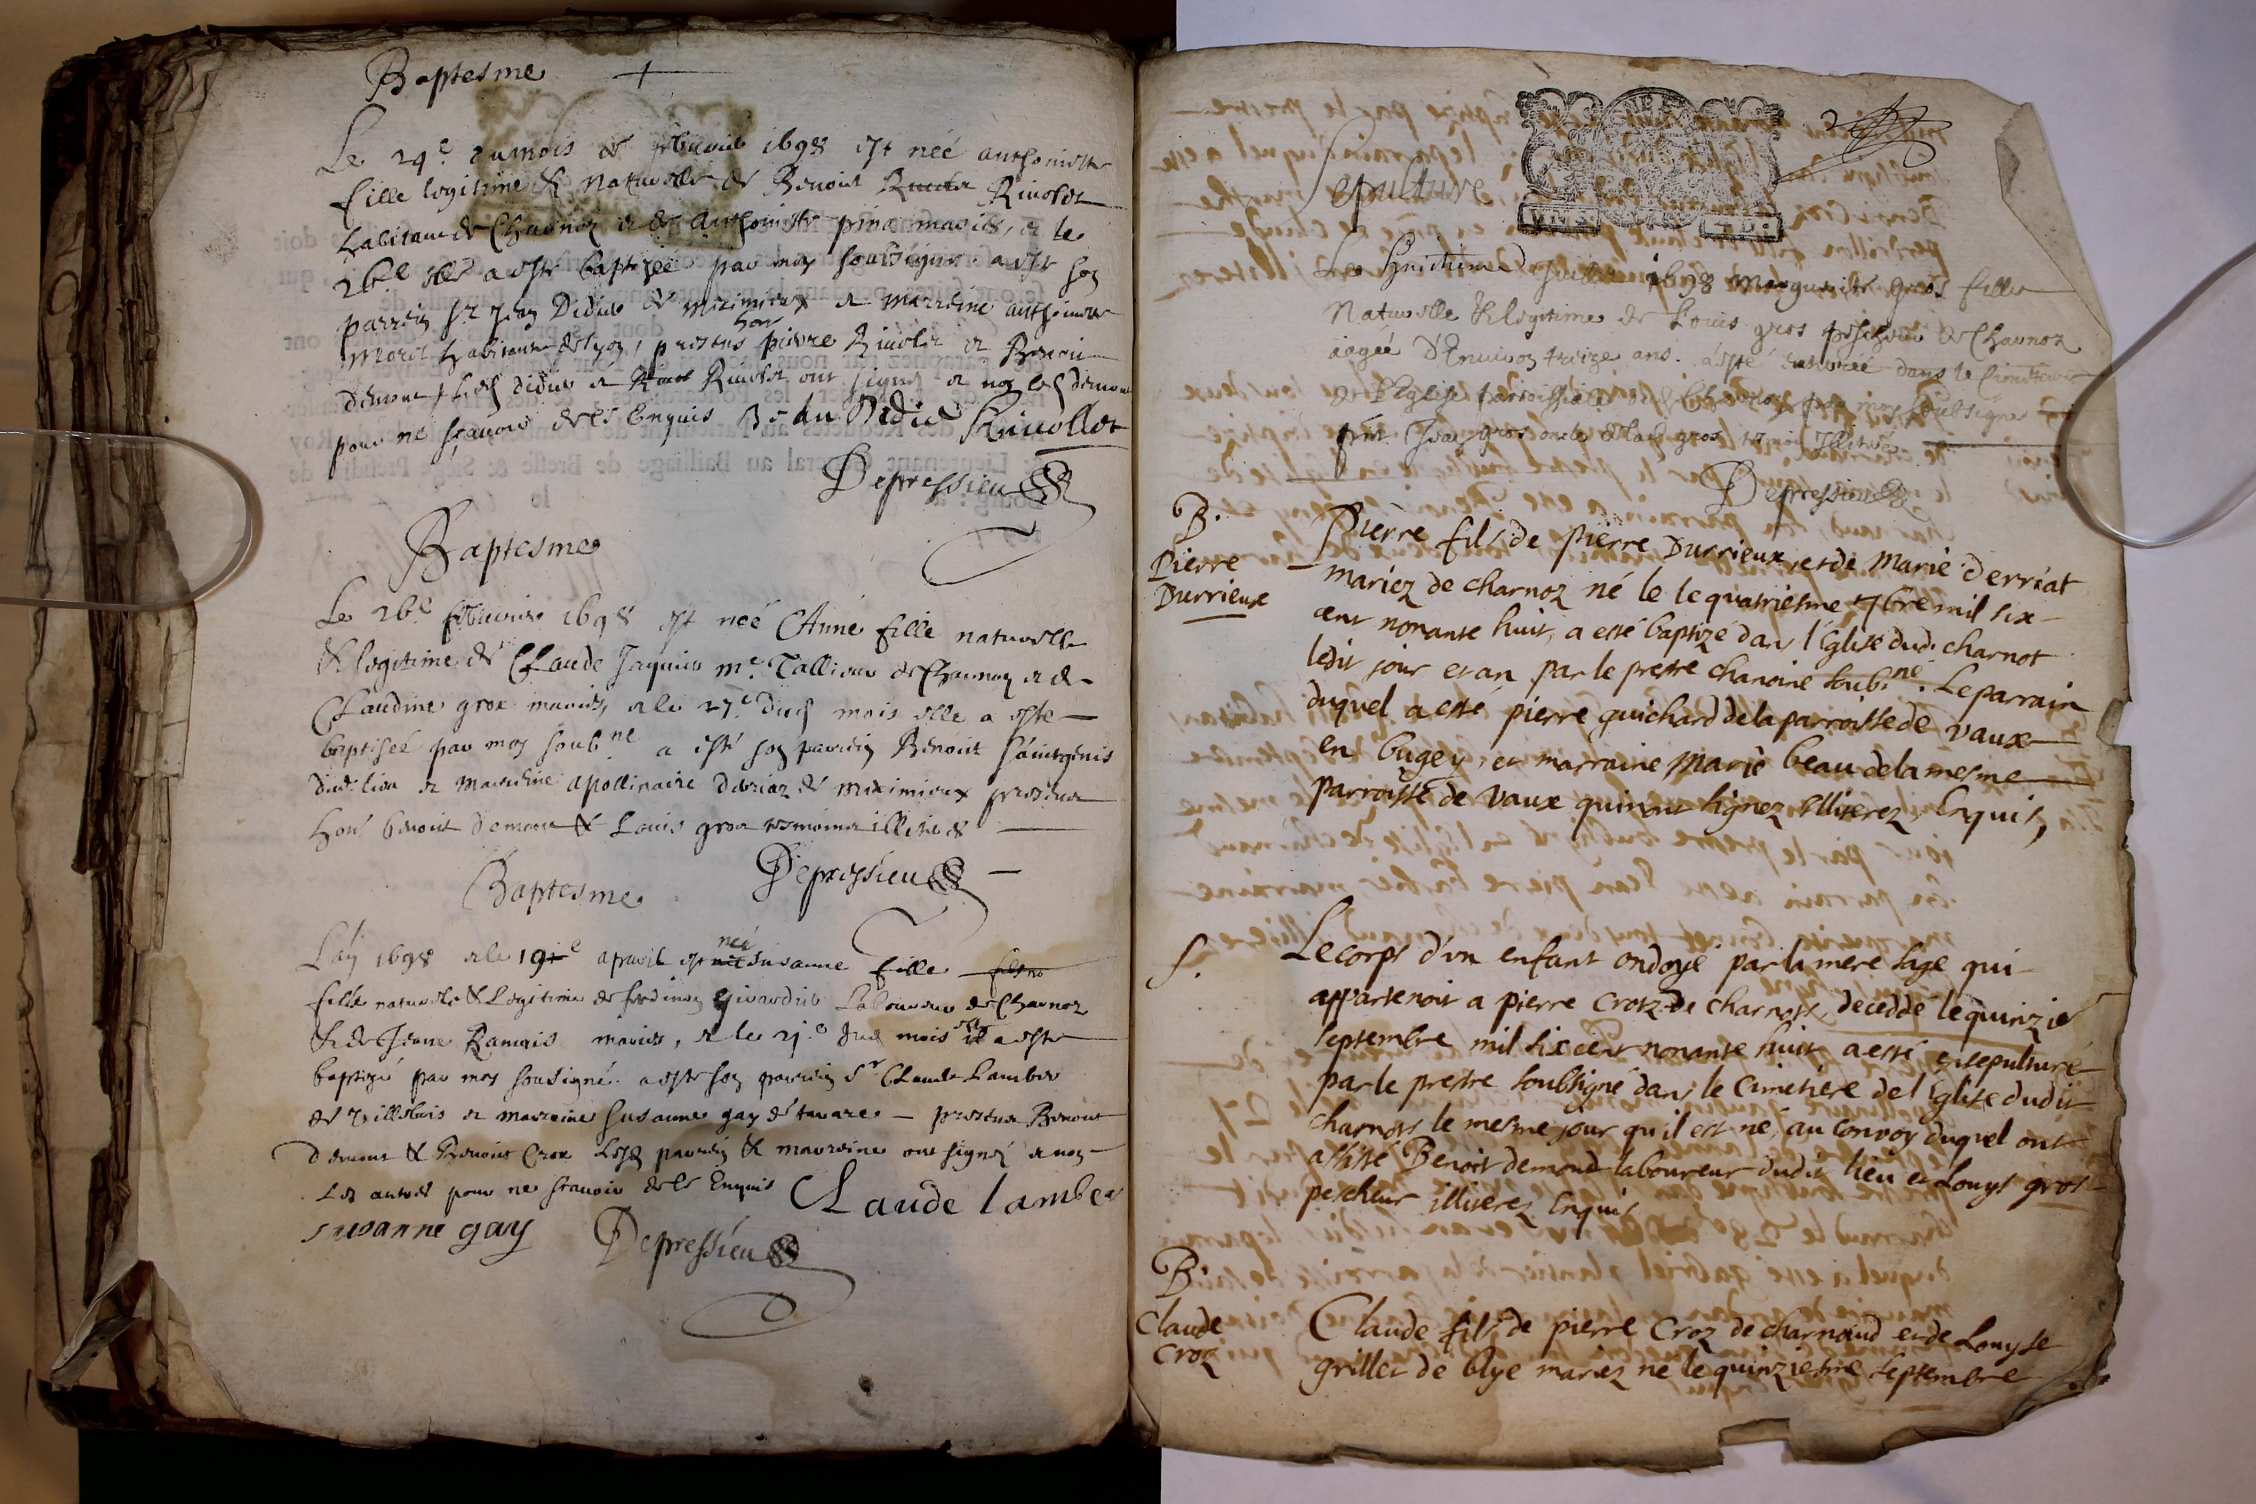 Baptesme
Le 24e du mois de febvrier 1698 est née anthoinette
fille legitime & naturelle de Benoict Rivolet
habitant de Charnoz et de anthoinette pin mariés, et le
26e elle a esté baptizée par moy soubsigné a esté son
parrein Sr Jean Didier de meximieux et marreine anthoinette
morel habitante de Lyon, presens hon pierre Rivolet et Benoict
demont, Lesd didier et Rivolet ont signez et non led demont
pour ne scavoir de ce Enquis Jean Didie Rivollet
Depressieu
Baptesme
Le 26e febvrier 1698 est née Anne fille naturelle
& legitime de Claude Jaquier me Tallieur de Charnoz et de
Claudine grox mariés, et le 27e dud mois elle a esté
baptisée par moy soubne a esté son parrein Benoict
dud lieu et marreine apollinaire de meximieux presens
hon benoict demont & Louis grox tesmoins illiterés
Depressieu
Baptesme
L'an 1698 et le 19e apvril est née susanne fille
fille naturelle & Legitime de Girardier Laboureur de Charnoz
& de Jeanne mariés, et le 21e dud mois elle a esté
baptizé par moy sousigné a esté son parrein Sr Claude Lamber
de Villebois et marreine susanne gay de presens Benoict
demont & Benoict Crox Lesd parrein & marreine ont signé et non
Les autres pour ne scavoir de ce Enquis Claude lamber
susanne gay Depressieu
2
Sepulture
Le huictieme Juillet 1698 Marguerite gros fille
Naturelle & legitime de Louis gros pescheur de Charnoz
aagée d'Environ treize ans. a esté enterrée dans le cimetiere
de l'Eglise parroissiale de Charnoz par moy soubsigné
pnt Jean gros oncle & gros tesmoins Illiterés
Depressieu
B.
Pierre
Durrieux
Pierre fils de pierre Durrieux, et de Marie derriat
mariez de charnoz né le le quatriesme 7bre mil six
cent nonante huit, a esté baptizé dans l'Eglise dud. charnot
ledit jour et an par le prestre chanoine soub.né. Le parrain
duquel a esté pierre guichard de la parroisse de vaux
en bugey, et marraine Marie beau de la mesme
parroisse de vaux qui n'ont signez illiterez Enquis,
S.
Le corps d'un enfant ondoyé par la mere sage qui
appartenoit a pierre Croz de charnoz, decedde le quinzie
septembre mil six cent nonante huit a esté ensepulturé
par le prestre soubsigné dans le Cimetiere de l'Eglise dudit
charnoz le mesme jour qu'il est né, au convoy duquel ont
assisté Benoit demond laboureur dudit lieu et Louys gros
pescheur illiterez Enquis
B.
Claude
Croz
Claude fils de pierre Croz de charnoud et de Louyse
grillet de blye mariez né le quinziesme septembre